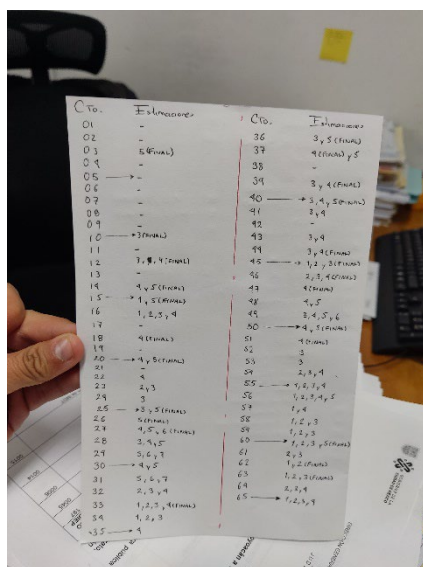 Cto. Estimaciones
01 -
02 -
03 5 (FINAL)
04 -
05 → -
06 -
07 -
08 -
09 -
10 → 3 (FINAL)
11 -
12 3, 4 (FINAL)
13 -
14 4 y 5 (FINAL)
15 → 4, 5 (FINAL)
16 1, 2, 3, 4
17 -
18 4 (FINAL)
19 -
20 → 4 y 5 (FINAL)
21 -
22 4
23 2 y 3
24 3
25 → 3 y 5 (FINAL)
26 5 (FINAL)
27 4, 5, 6 (FINAL)
28 3, 4, 5
29 5, 6, 7
30 → 4 y 5
31 5, 6, 7
32 2, 3, 4
33 1, 2, 3, 4 (FINAL)
34 1, 2, 3
35 → 4
Cto. Estimaciones
36 3 y 5 (FINAL)
37 4 (FINAL) y 5
38 -
39 3 y 4 (FINAL)
40 → 3, 4 y 5 (FINAL)
41 3 y 4
42 -
43 3 y 4
44 3 y 4 (FINAL)
45 → 1, 2, 3 (FINAL)
46 2, 3, 4 (FINAL)
47 4 (FINAL)
48 4 y 5
49 3, 4, 5, 6
50 → 4, 5 (FINAL)
51 4 (FINAL)
52 3
53 3
54 2, 3, 4
55 → 1, 2, 3, 4
56 1, 2, 3, 4, 5
57 1, 4
58 1, 2, 3
59 1, 2, 3
60 → 1, 2, 3, 5 (FINAL)
61 2 y 3
62 1, 2 (FINAL)
63 1, 2, 3 (FINAL)
64 2, 3, 4
65 → 1, 2, 3, 4